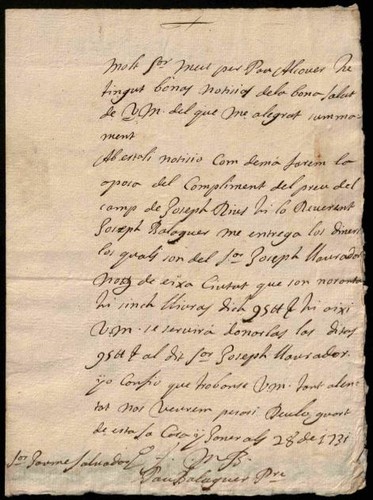 Molt Sor Meu per Pau Alcover he
tingut bonas noticias de la bona salut
de V.M. del que me alegrat summa
ment
Ab esta li noticio Com demá farem la
apoca del Compliment del preu del
camp de Joseph Rius hi lo Reverent
Joseph Balaguer me entrega los diners
los quals son del Sor Joseph Llaurador
de eixa Ciutat que son noranta
hi sinch lliuras dich 95 ll hi aixi
V.M. se servirá donarlas las ditas
95 ll al dit Sor Joseph Llaurador.
yo Confio que trobanse V.M. tant alen
tat nos veurem per asi
de esta sa Casa y Janer als 28 de 1731
Sor Jaume Salvador
Pau Balaguer Pre